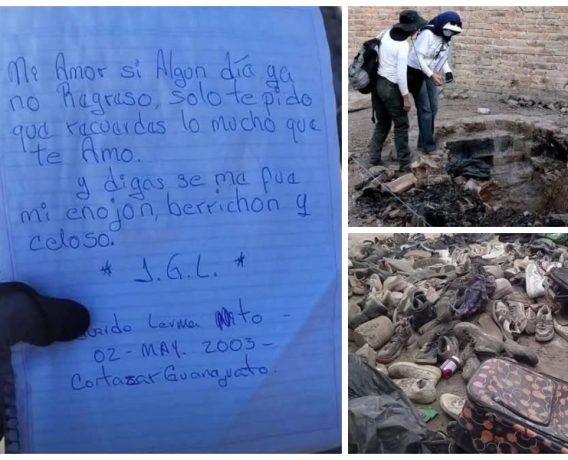 Mi Amor si Algon día ya
no Ragraso, solo te pido
que racuerdas lo mucho que
te Amo.
y digas se me fue
mi enojon, berrichon y
celoso.
* J.G.L. *
Lerma
02- MAY. 2003-
Cortazar Guanajuato.